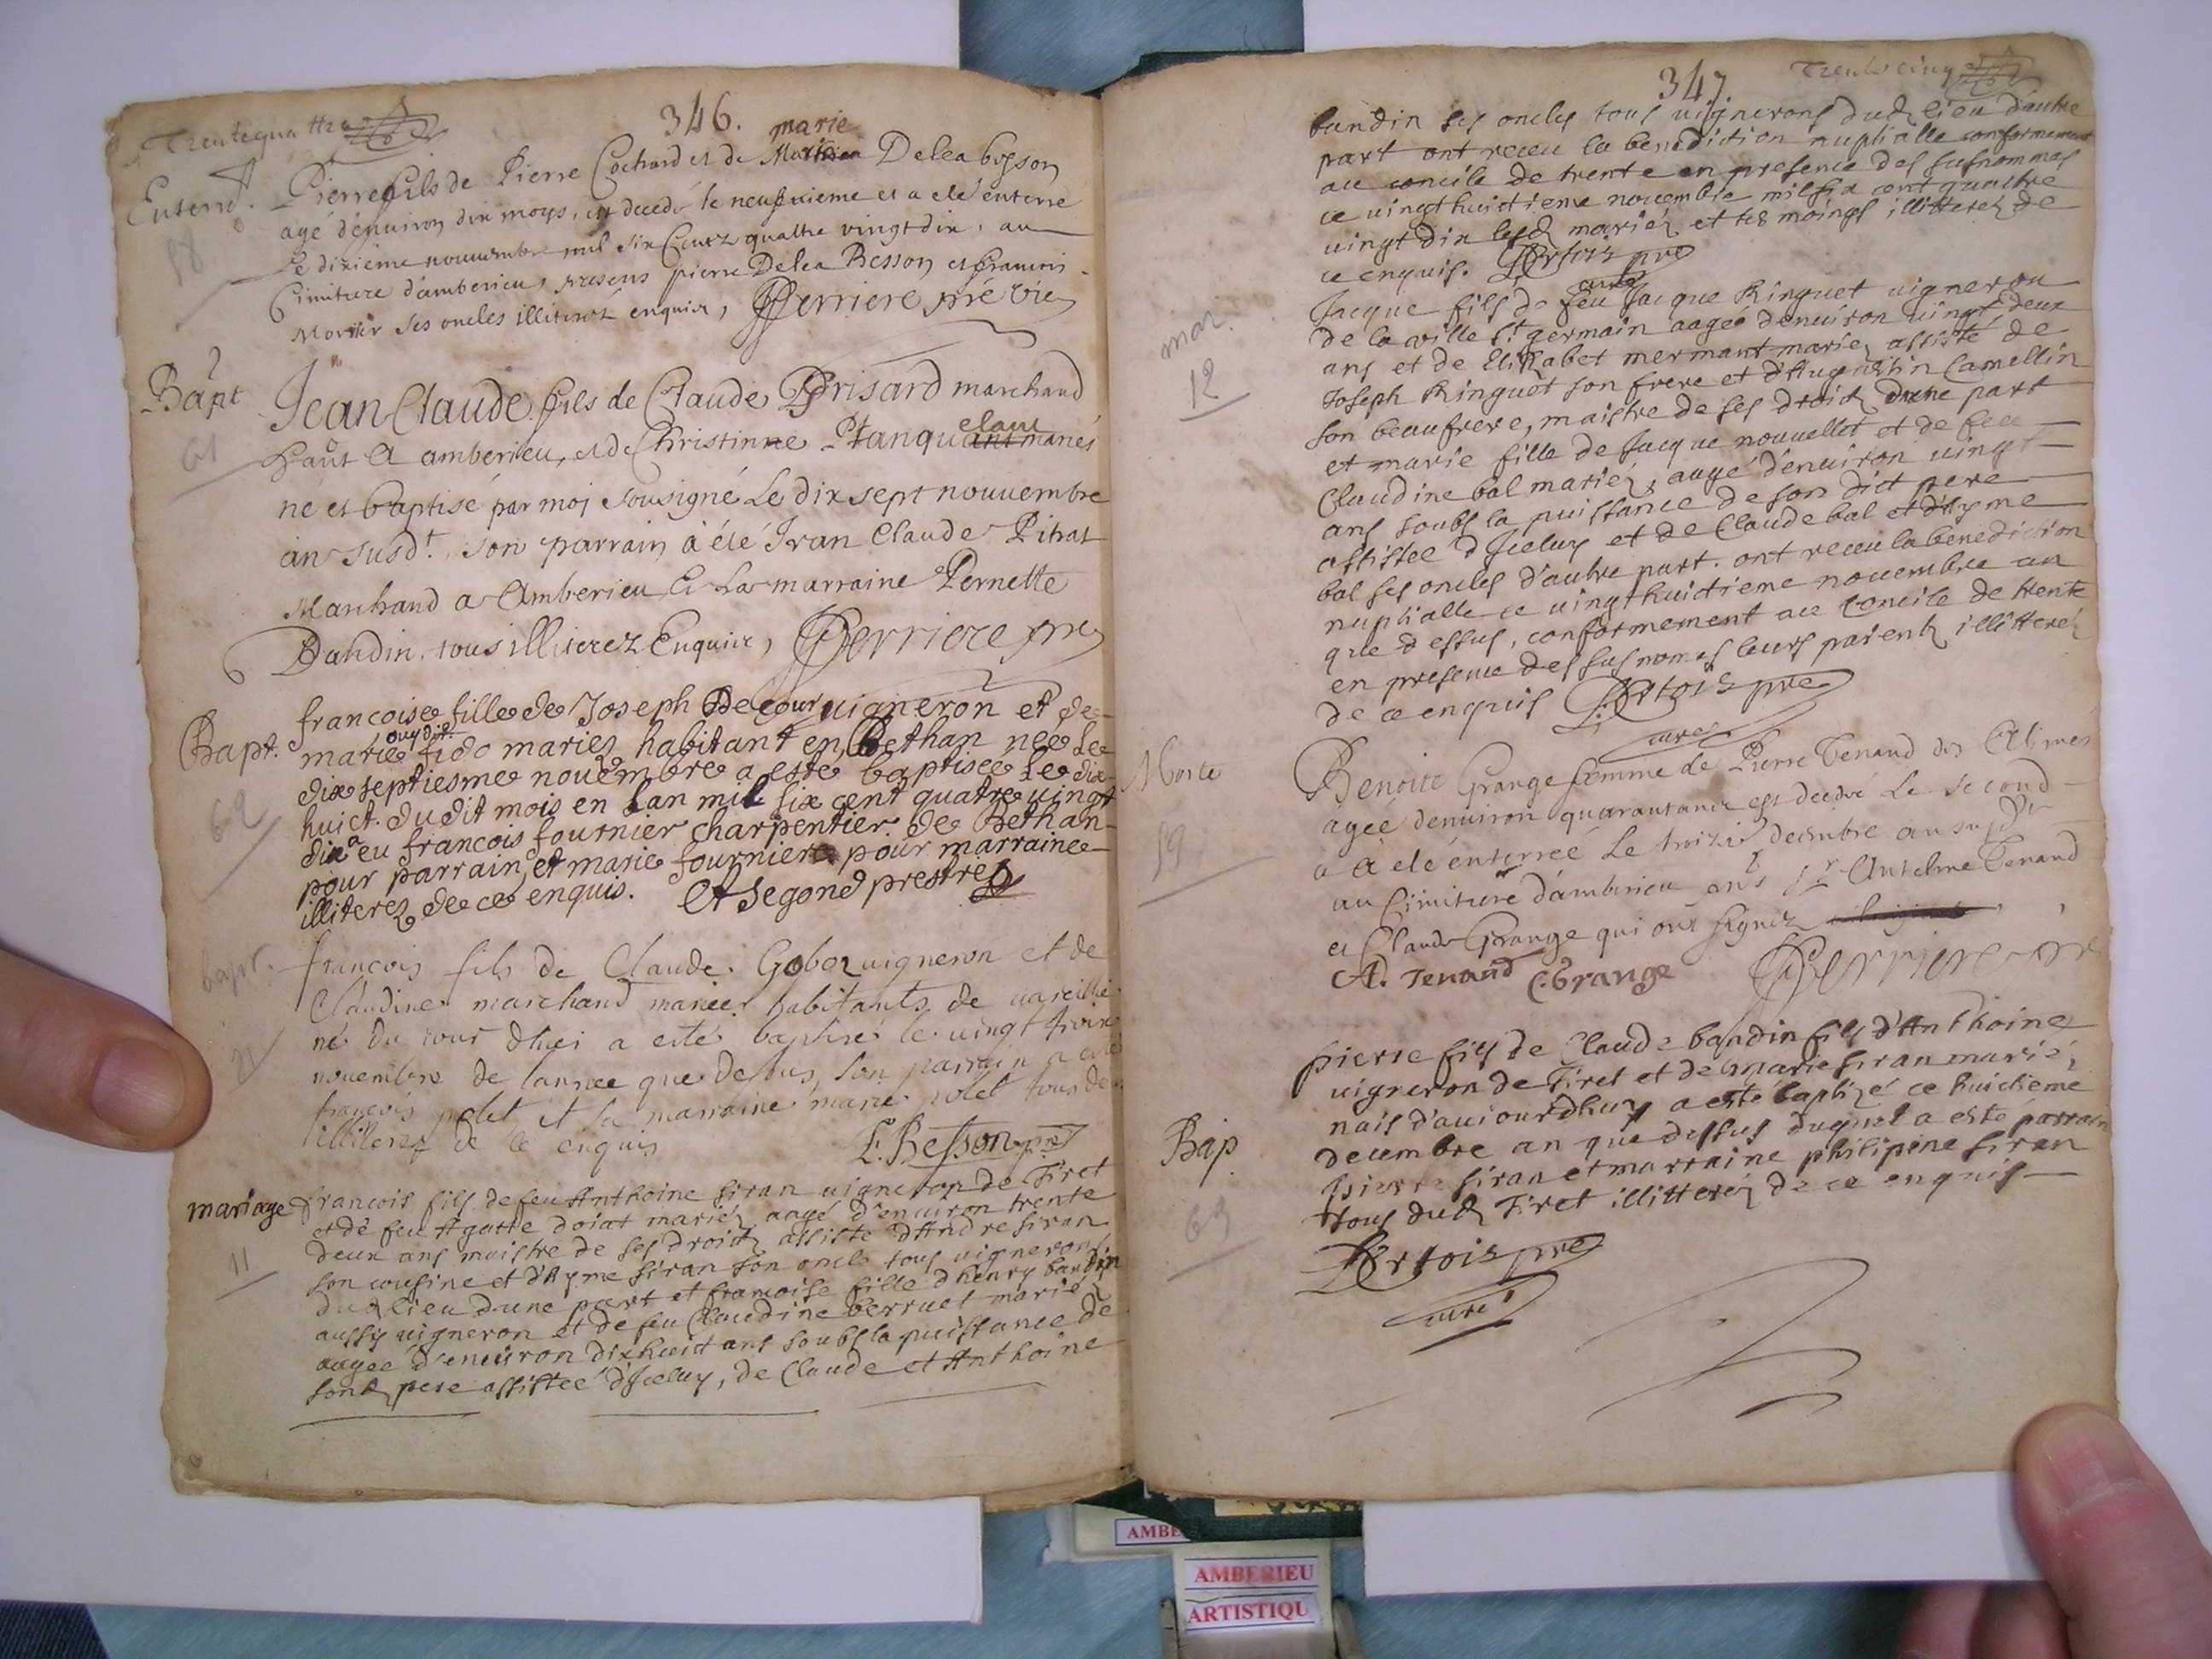 Trente quattre
346.
Enterré.
marie
Pierre fils de Pierre Cochard et de Delea besson
agé d'enuiron dix moys, est decedé le neufuieme et a eté enterré
le dixieme nouuembre mil six Centz quattre vingt dix, au
Cimitiere d'amberieu, presens pierre Delea Besson et francois
Mortier ses oncles illiterez enquis, Perriere pre vic
Bapt
61
Jean Claude fils de Claude Brisard marchand
elam
hant a amberieu, et de Christinne Planqu mariés
né et baptisé par moj sousigné Le dix sept nouuembre
an susdt. son parrain à été Jean Claude Pitrat
Marchand a Amberieu Et La marraine Pernette
Dandin, tous illiterez Enquis, Perriere pre
Bapt.
62
francoise fille de Joseph Decour uigneron et de
ouy dit
marie fido mariez habitant en Bethan nee Le
dix septiesme nouembre a esté baptisee le dix
huict. du dit mois en Lan mil six cent quatre uingt
dix a eu francois fournier charpentier de Bethan
pour parrain et marie fourniere pour marraine
illiterez de ce enquis. Et Segond prestre
bapt.
francois fils de Claude Gobet uigneron et de
Claudine marchand mariez habitants de uareille
né du jour dhui a esté baptisé le uingt troix
nouembre de lannee que dessus, son parrain a eté
francois polet et sa marraine marie polet tous deux
illiterez de ce enquis F. Besson pre
mariage
11
francois fils de feu Anthoine siran uigneron de Tiret
et de feu Agatte doiat mariez aagé d'enuiron trente
deux ans maistre de ses droictz assisté d'Andre siran
son cousine et d'Ayme siran son oncle tous uignerons
dud lieu dune part et francoise fille d'henry bandin
aussy uigneron et de feu Claudine berruet mariéz
aagee d'enuiron dixhuict ans soubs la puissance de
sond pere assistee d'Iceluy, de Claude et Anthoine
347
Trente cinq
bandin ses oncles tous uignerons dud lieu d'autre
part ont receu la benediction nuptialle conformement
au concile de trente en presence des susnommes
ce uingthuictieme nouembre mil six cent quattre
uingt dix lesd mariéz et tesmoings illitterez de
ce enquis. Bertois pre
curé
mar.
12
Jacque fils de feu Jacque Ringuet uigneron
de la uille St germain aagée denuiron uingt deux
ans et de Elizabet mermant mariez assisté de
Joseph Ringuet son frere et d'Augustin Camellin
son beaufrere, maistre de ses droictz dune part
et marie fille de Jacque nouuellet et de feue
Claudine bal mariéz, aagé d'enuiron uingt
ans soubs la puissance de son dict pere
assistee d'Iceluy et de Claude bal et d'Ayme
bal ses oncles d'autre part. ont receu la benediction
nuptialle ce uingthuictieme nouembre an
que dessus, conformement au Concile de trente
en presence des susnomes leurs parentz illitterez
de ce enquis Bertois pre
curé
Morte
59
Benoite Grange femme de Pierre Tenand des Alimes
agée denuiron quarantans est decedé Le second
a été enterrée Le troize decembre an susdt
au Cimitiere d'amberieu pns sr Anthelme Tenand
et Claude Grange qui ont signez
A. Tenand C. Grange Perriere pre
Bap.
63
pierre fils de Claude bandin fils d'Anthoine
uigneron de Tiret et de marie siran mariéz
nais d'auiourdhuy a esté baptizé ce huictieme
decembre an que dessus duquel a esté parrain
pierre siran et marraine philipine siran
tous dud Tiret illitteréz de ce enquis
Bertois pre
curé
AMBE
AMBERIEU
ARTISTIQU